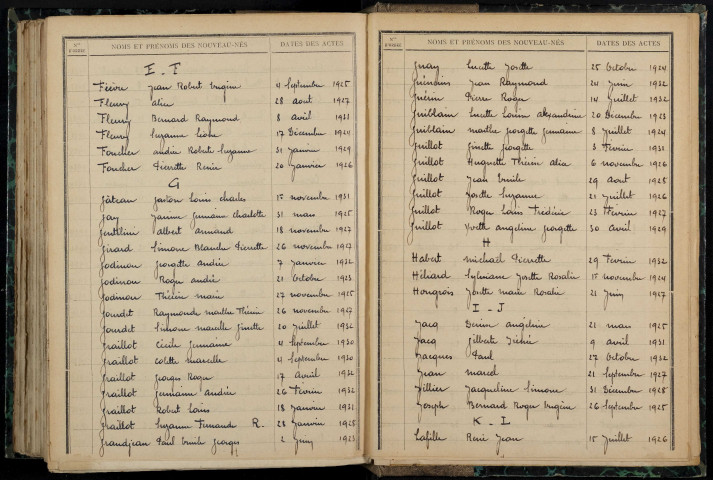 Nos D'ORDRE NOMS ET PRÉNOMS DES NOUVEAU-NÉS DATES DES ACTES
E - F
Févou Jean Robert Eugène 4 Septembre 1925
Fleury Alice 28 aout 1927
Fleury Bernard Raymond 8 avril 1931
Fleury Suzanne Léone 17 Décembre 1924
Foucher andrée Roberte Suzanne 31 Janvier 1929
Foucher Pierrette Renée 20 Janvier 1926
G
Gateau gaston Louis Charles 1er novembre 1931
Gay Jeanne Germaine Charlotte 31 mai 1925
Gentilini albert armand 18 novembre 1927
Girard Simone Blanche Pierrette 26 novembre 1927
Godineau georgette andrée 7 Janvier 1932
Godineau Roger andré 21 Octobre 1923
Godineau Thérèse marie 27 novembre 1925
Gourdet Raymonde marthe Thérèse 26 novembre 1927
Gourdet Simone marcelle ginette 20 Juillet 1926
Graillot Cécile germaine 4 Septembre 1930
Graillot Colette marcelle 4 Septembre 1930
Graillot georges Roger 17 avril 1932
Graillot germaine andrée 26 Février 1932
Graillot Robert Louis 18 Janvier 1931
Graillot Suzanne Fernande R. 28 Janvier 1925
Grandjean Paul Emile georges 2 Juin 1923
Nos D'ORDRE NOMS ET PRÉNOMS DES NOUVEAU-NÉS DATES DES ACTES
Lucette Josette 25 Octobre 1924
Guénins Jean Raymond 24 Juin 1932
Guérin Pierre Roger 14 Juillet 1932
Guiblain Lucette Louise alexandrine 20 Décembre 1923
Guiblain marthe georgette germaine 8 Juillet 1924
Guillot ginette georgette 3 Février 1931
Guillot Huguette Thérèse alice 6 novembre 1926
Guillot Jean Emile 29 aout 1928
Guillot Josette Suzanne 21 Juillet 1926
Guillot Roger Louis Frédéric 23 Février 1927
Guillot Yvette angeline georgette 30 avril 1929
H
Habert michaël Pierrette 29 Février 1932
Héliard Sylviane Josette Rosalie 1er novembre 1924
Hongrois Josette marie Rosalie 21 Juin 1927
I - J
Jacq Denise angéline 21 mars 1925
Jacq gilberte Désirée 9 avril 1931
Jacques Paul 27 Octobre 1932
Jean marcel 21 Septembre 1927
Jillier Jacqueline Simone 31 Décembre 1928
Joseph Bernard Roger Eugène 26 Septembre 1925
K - L
Lafille René Jean 15 Juillet 1926